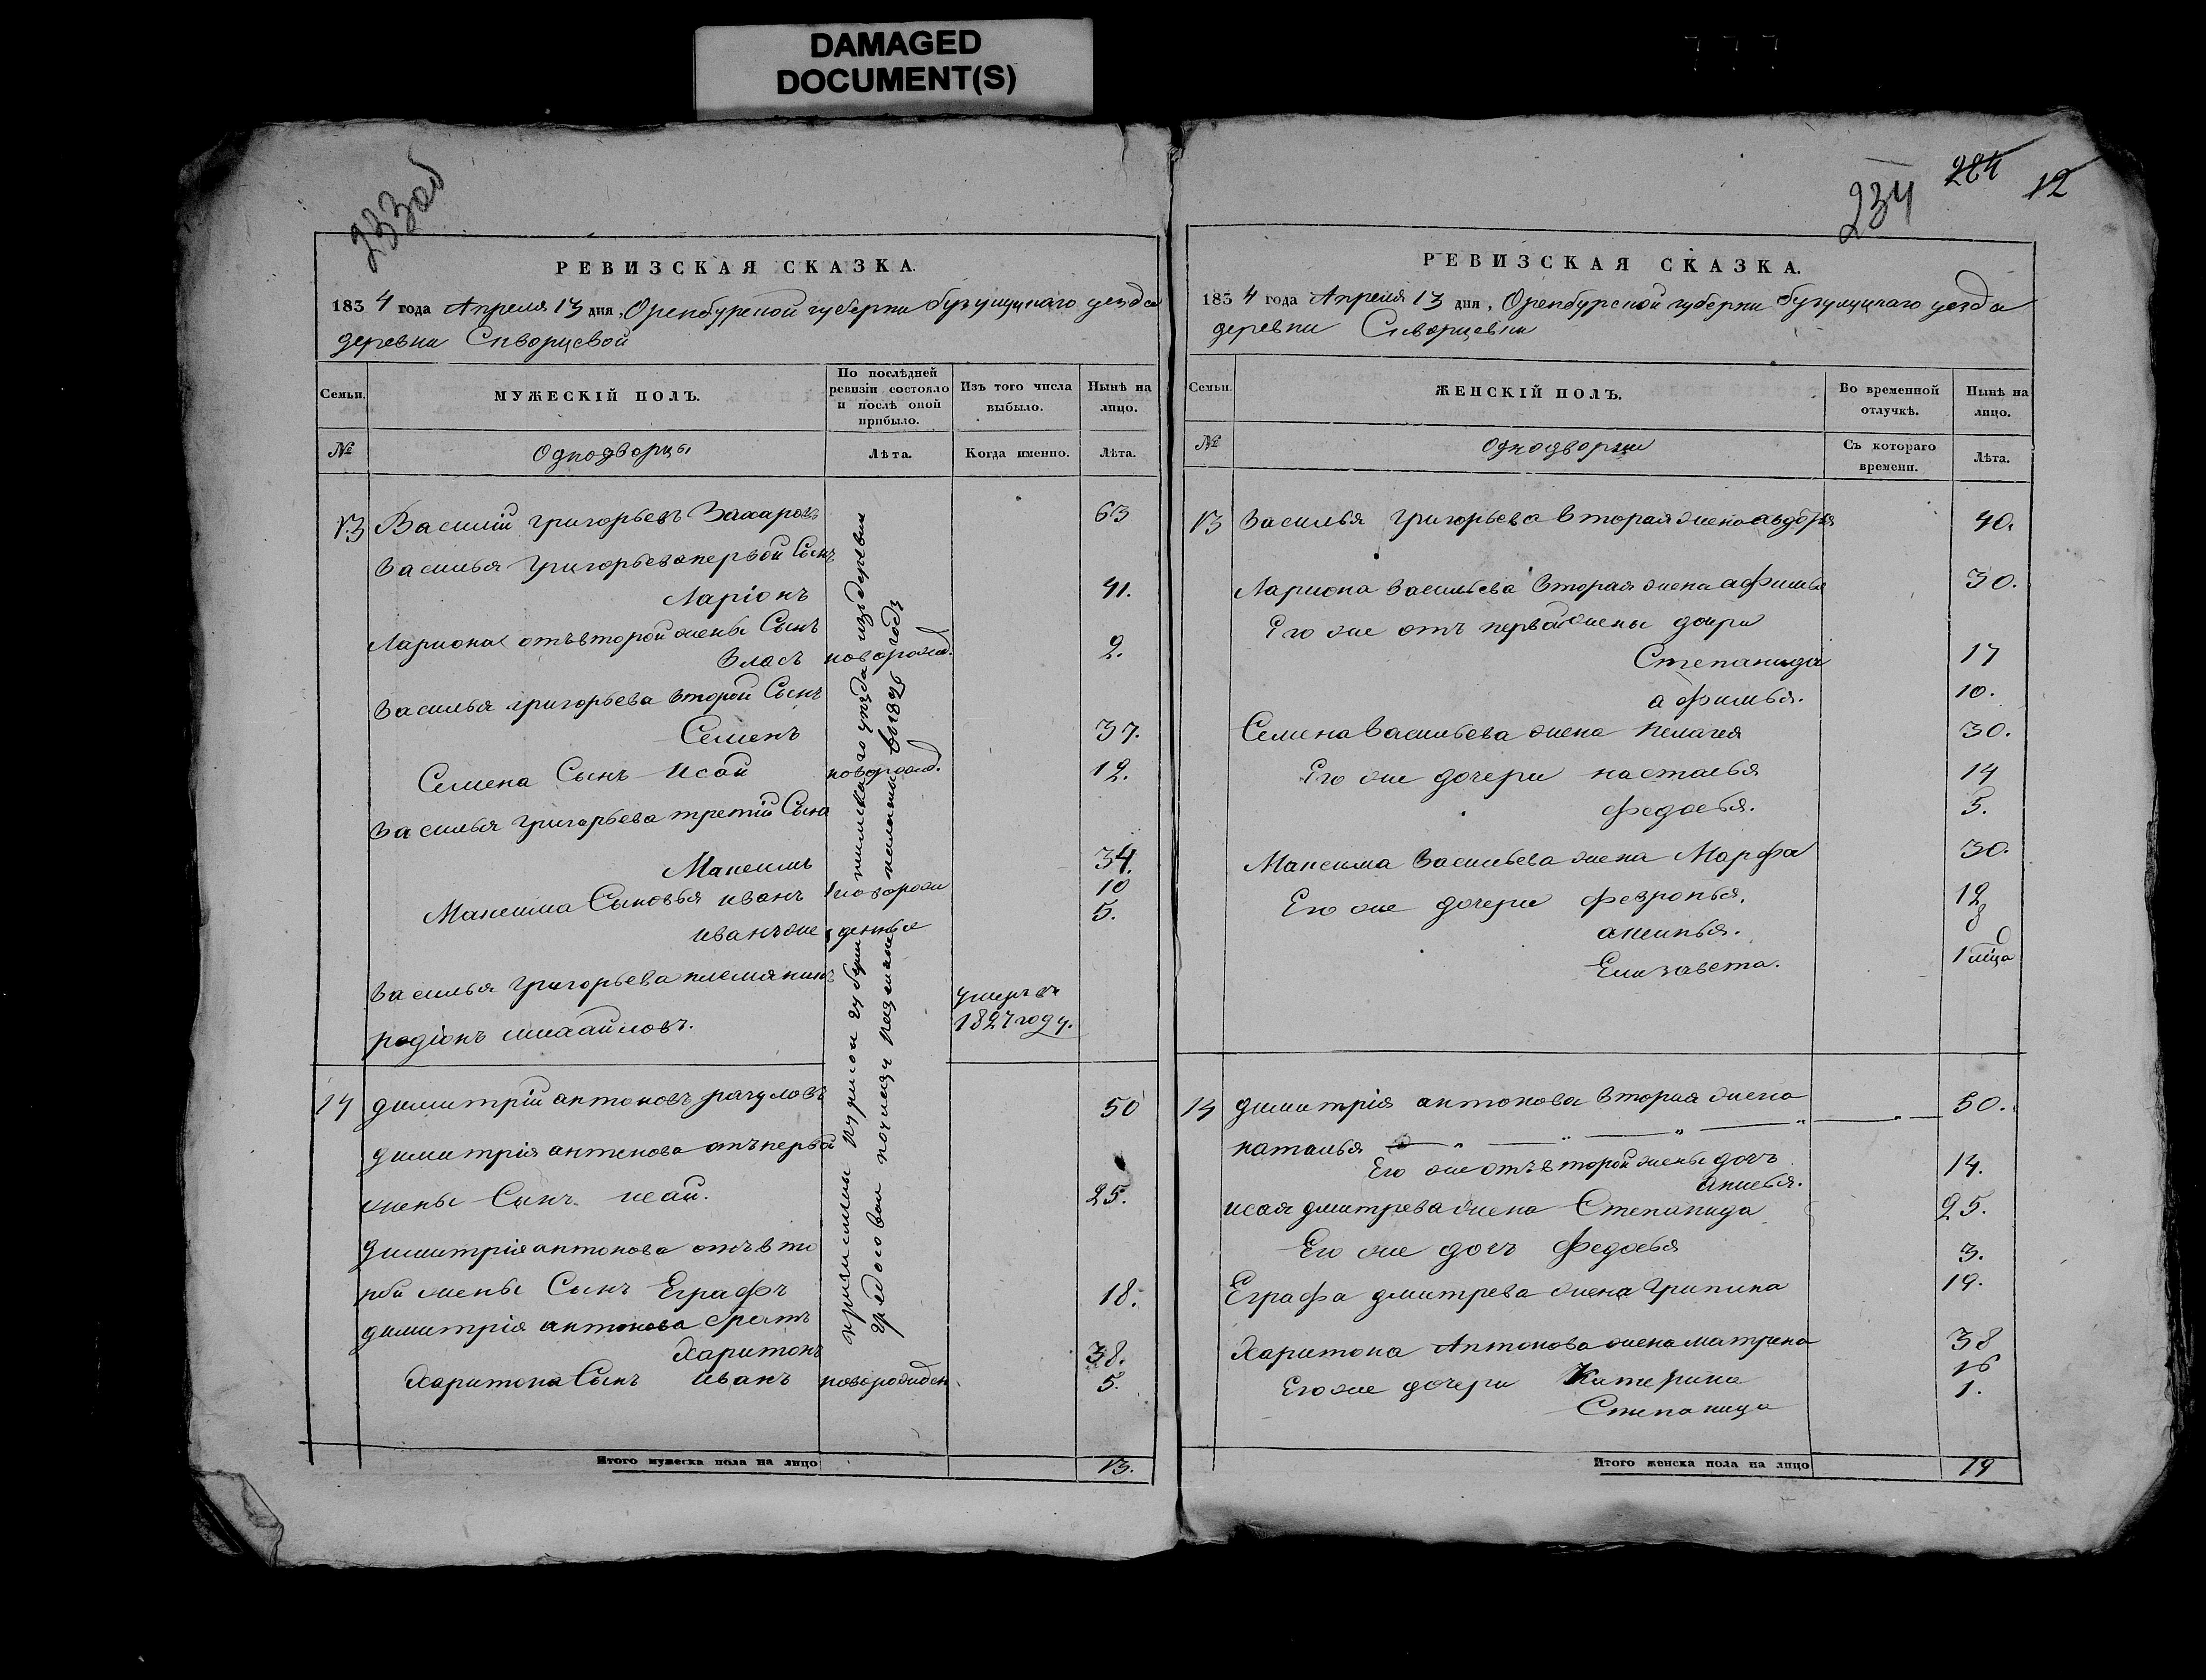 DAMAGED
DOCUMENT(S)
233об
РЕВИЗСКАЯ СКАЗКА.
1834 года Апреля 13 дня, Оренбурской губерни бузулуцкаго уезда
деревни Скворцевой
Семьи.
МУЖЕСКІЙ ПОЛЪ.
По послѣдней ревизіи состояло и послѣ оной прибыло.
Изъ того числа выбыло.
Нынѣ на лицо.
№
Однодворцы
Лѣта.
Когда именно.
Лѣта.
13 Василій григорьевъ Захаровъ 63
Василья Григорьева первой Сынъ
Ларіонъ 41.
Лариона отъ второй жены Сынъ
Власъ новорожд. 2.
Василья григорьева второй Сынъ
Семенъ 37.
Семена Сынъ Исай новорожд. 12.
Василья григорьева третій Сынъ
Максимъ 34.
Максима Сыновья иванъ новорож 10
иванъ же денные 5.
Василья Григорьева племяникъ
родіонъ михайловъ. умеръ въ 1827 году.
14 димитрій антоновъ 50
димитрія антонова отъ первой
жены Сынъ исай. 25.
димитрія антонова отъ вто
рой жены Сынъ Еграфъ 18.
димитрія антонова братъ
Харитонъ 38.
Харитона Сынъ иванъ новорожден. 5.
Итого мужеска пола на лицо 13.
губерни уезда изъ деревни
в 1826 годѣ
234 284 12
РЕВИЗСКАЯ СКАЗКА.
1834 года Апреля 13 дня, Оренбурской губерни бузулуцкаго уезда
деревни Скворцевки
Семьи.
ЖЕНСКІЙ ПОЛЪ.
Во временной отлучкѣ.
Нынѣ на лицо.
№
Однодворки
Съ котораго времени.
Лѣта.
13 Василья Григорьева вторая жена авдотья 40.
Лариона васильева вторая жена афимья 30.
Его же отъ первой жены дочри
Степанида 17
афимья. 10.
Семена васильева жена пелагея 30.
Его же дочери настасья 14
федосья. 5.
Максима васильева жена Марфа 30.
Его же дочери февронья. 12
аксинья. 8
Елизавета. 1 меца
14 димитрія антонова вторая жена 50.
наталья
Его же отъ второй жены дочь 14.
анисья.
исая дмитрева жена Степанида 25.
Его же дочь федосья 3.
Еграфа дмитрева жена Грипина 19.
Харитона Антонова жена матрена 38
Его же дочери Катерина 16
Степанида 1.
Итого женска пола на лицо 19